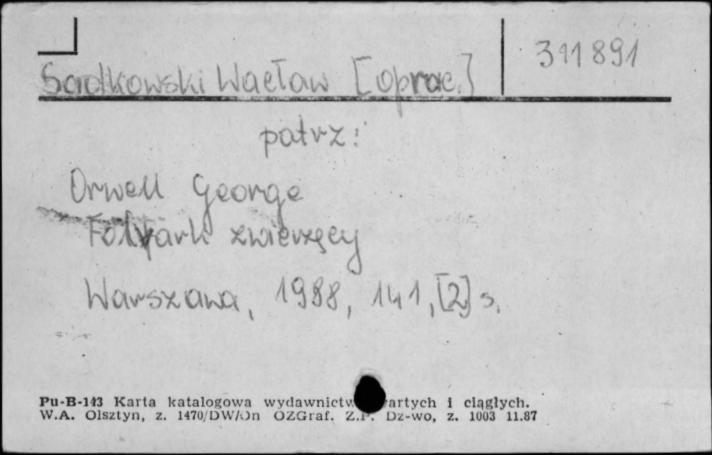 311891
Sadkowski Wacław [oprac.]
patrz:
Orwell George
Folwark zwierzęcy
Warszawa, 1988, 141, [2] s.
Pu-B-143 Karta katalogowa wydawnictw zwartych i ciągłych.
W.A. Olsztyn, z. 1470/DW/On OZGraf. Z.P. Dz-wo, z. 1003 11.87